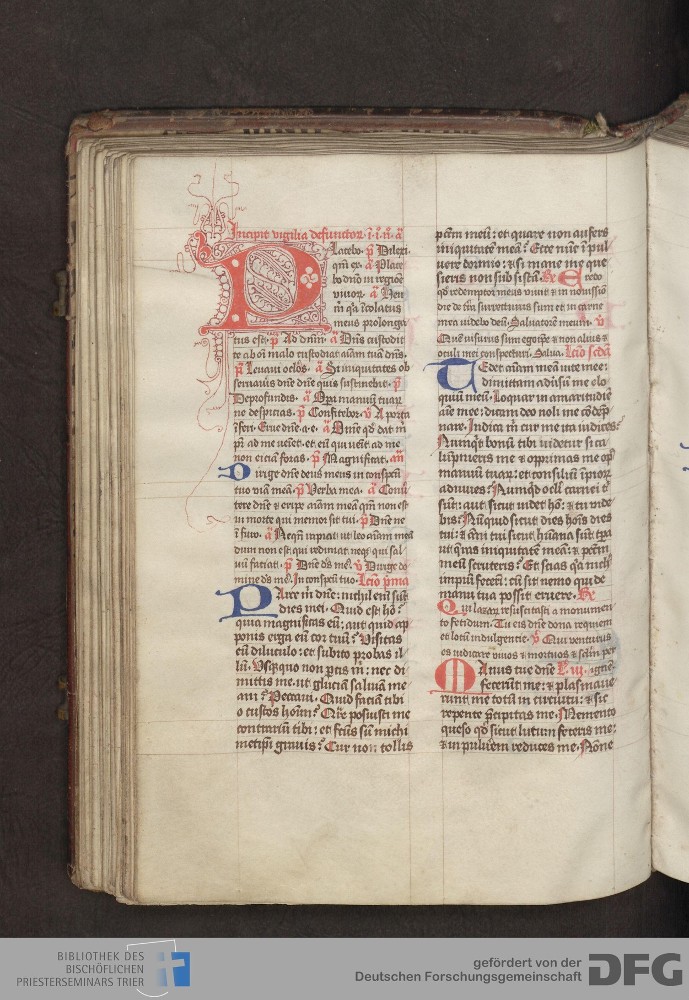 Incipit vigilia defunctor. i. i. n. a
Placebo. p Dilexi.
qm ex. a Place
bo dno in regione
vivor. a Heu
m qa icolatus
meus prolonga
tus est. p Ad dnm. a Dns custodit
te ab oi malo custodiat aiam tua dns.
p Levavi oclos. a Si iniquitates ob
servavis dne dne quis sustinebit. p
De profundis. a Opa manuu tuar
ne despicias. p Confitebor. v A porta
iferi. Erue dne. a. e. a Omne qd dat m
pr ad me veiet. et eu qui veit ad me
non eiciam foras. p Magnificat. an
Dirige dne deus meus in conspcu
tuo via mea. p Verba mea. a Conv
tere dne et eripe aiam mea qm non est
in morte qui memor sit tui. p Dne ne
i furo. a Neqn rapiat ut leo aiam mea
dum non est qui redimat neqz qui sal
vu faciat. p Dne ds ms. v Dirige do
mine ds ms. In conspcu tuo. Lcio pma
Parce m dne: nichil eni sut
dies mei. Quid est ho?
quia magnificas eu: aut quid ap
ponis erga eu cor tuu? Visitas
eu diluculo: et subito probas il
lu. Usqzquo non pcis m: nec di
mittis me. ut glutiam salivam me
am? Peccavi. Quid faciam tibi
o custos hoim? Qre posuisti me
contrariu tibi: et fcus su michi
metipi gravis? Cur non tollis
pctm meu: et quare non aufers
iniquitate mea? Ecce nuc i pul
vere dormio: et si mane me que
sieris non subsista. Rx Credo
qd redemptor meus vivit et in novissio
die de tra surrecturus sum et in carne
mea videbo deu. Salvatore meum. v
Que visurus sum ego ipe et non alius et
oculi mei conspecturi. Salva. Lcio scda
Tedet aiam mea vite mee:
dimittam adusu me elo
quiu meu. Loquar in amaritudie
aie mee: dicam deo noli me codep
nare. Indica m cur me ita iudices?
Nunqz bonu tibi videtur si ca
lupnieris me et opprimas me op
manuu tuar: et consiliu ipior
adiuves? Nunqd ocli carnei t
sut: aut sicut videt ho: et tu vide
bis? Nuquid sicut dies hois dies
tui: et ani tui sicut humana sut tpa
ut qras iniquitate mea: et pctm
meu scruteris? Et scias qa nich
impiu fecei: cu sit nemo qui de
manu tua possit eruere. Rx
Qui lazar resuscitasti a monumen
to fetidum. Tu eis dne dona requiem
et locu indulgentie. v Qui venturus
es iudicare vivos et mortuos et sclm per
Manus tue dne L. iii. ignem.
fecerut me: et plasmave
runt me totu in circuitu: et sic
repente pcipitas me. Memento
queso qd sicut lutum feceris me:
et in pulvem reduces me. None
BIBLIOTHEK DES
BISCHÖFLICHEN
PRIESTERSEMINARS TRIER
gefördert von der
Deutschen Forschungsgemeinschaft
DFG